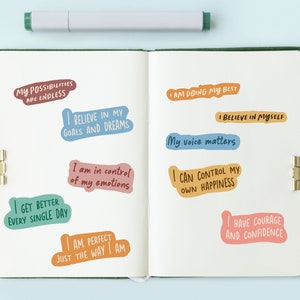 MY POSSIBILITIES
ARE ENDLESS
I BELIEVE IN MY
GOALS AND DREAMS
I am in control
of my emotions
I GET BETTER
EVERY SINGLE DAY
I AM PERFECT
JUST THE WAY I AM
I AM DOING MY BEST
I BELIEVE IN MYSELF
My voice matters
I CAN CONTROL MY
OWN HAPPINESS
I HAVE COURAGE
AND CONFIDENCE